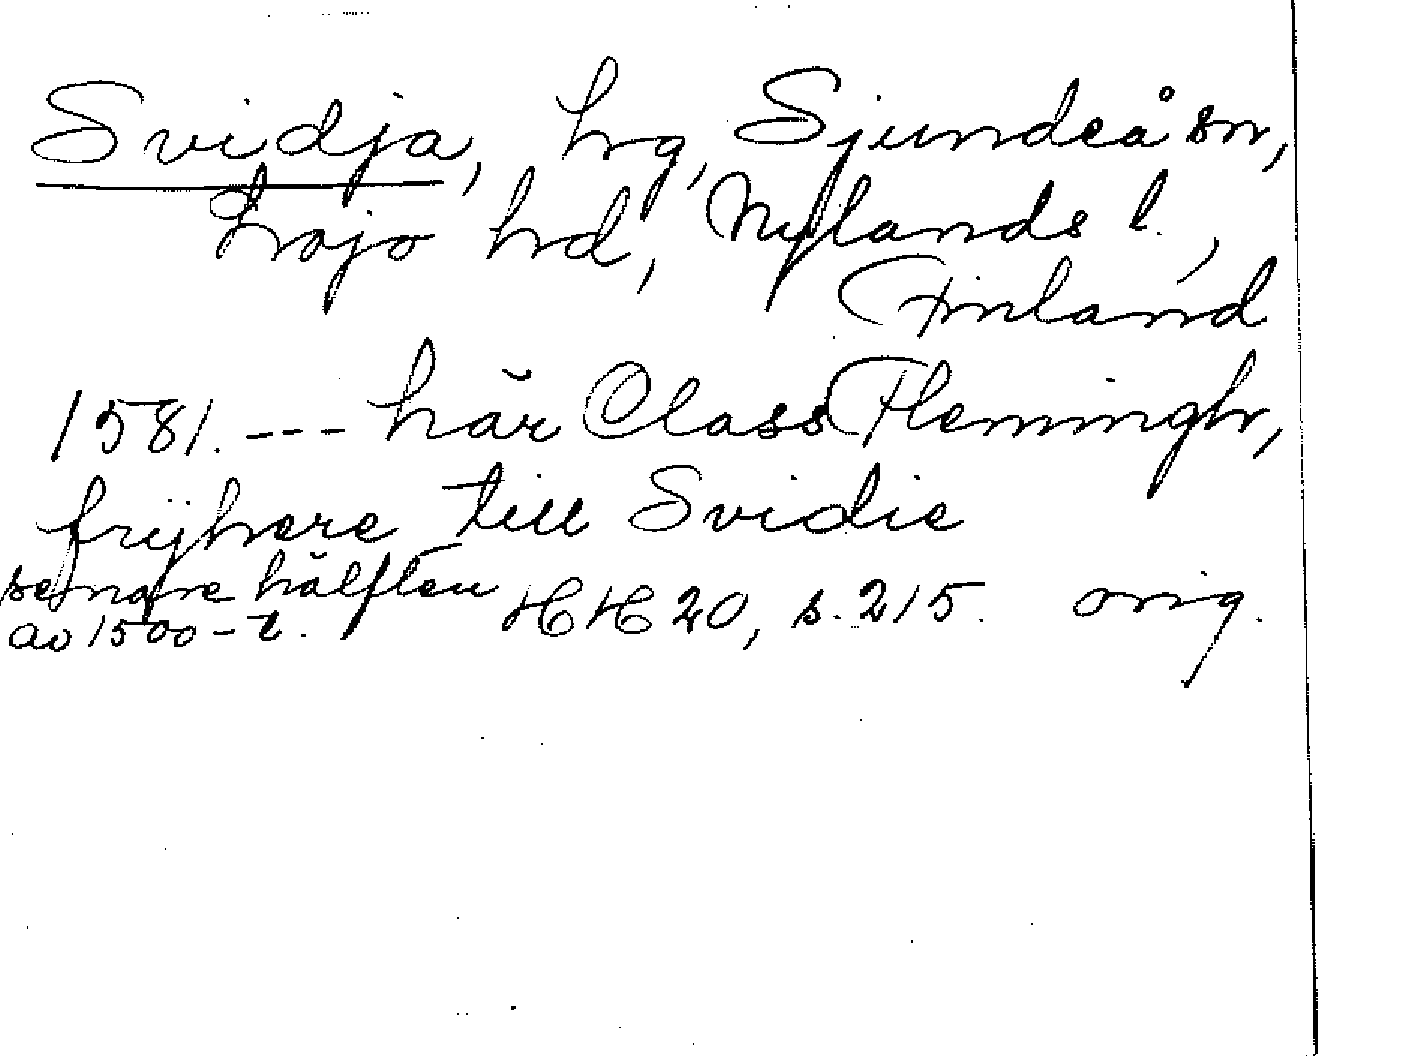 Svidja, hrg, Sjundeå sn,
Lojo hrd, Nylands l.,
Finland
1581. --- här Class Flemingh,
frijhere till Svidie
senare hälften
av 1500-t. HH 20, s. 215. orig.